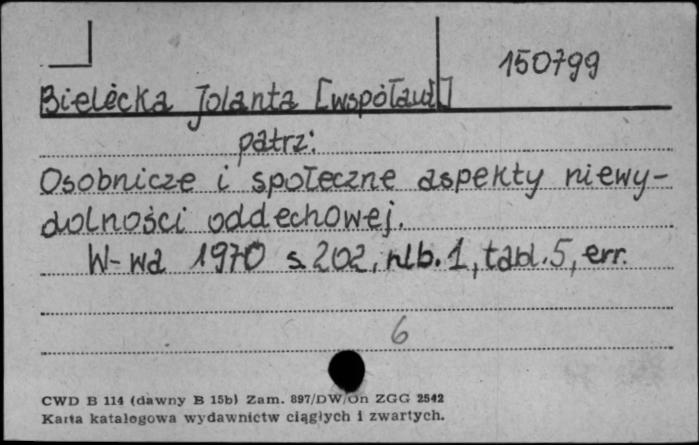 150799
Bielecka Jolanta [współaut.]
patrz:
Osobnicze i społeczne aspekty niewy-
dolności oddechowej.
W-wa 1970 s. 202, nlb. 1, tabl. 5, err.
6
CWD B 114 (dawny B 15b) Zam. 897/DW/On ZGG 2542
Karta katalogowa wydawnictw ciągłych i zwartych.